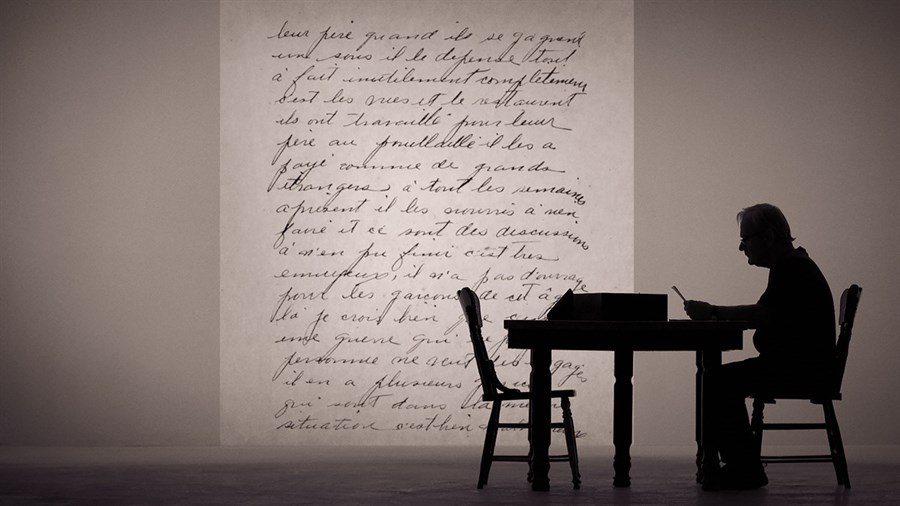 leur père quand ils se gagnent
un sous il le dépense tout
à fait inutilement complètement
c'est les vues et le restaurent
ils ont travaillé pour leur
père au poullaillé il les a
payé comme de grands
étrangers, à tout les semaines
apresent il les nourris à rien
faire et ce sont des discussions
à n'en pu finir c'est très
ennuyeux, il n'a pas d'ouvrage
pour les garçons de cet âge
là je crois bien que
une guerre qui
personne ne veut des gages
il en a plusieurs
qui sont dans la même
situation c'est bien